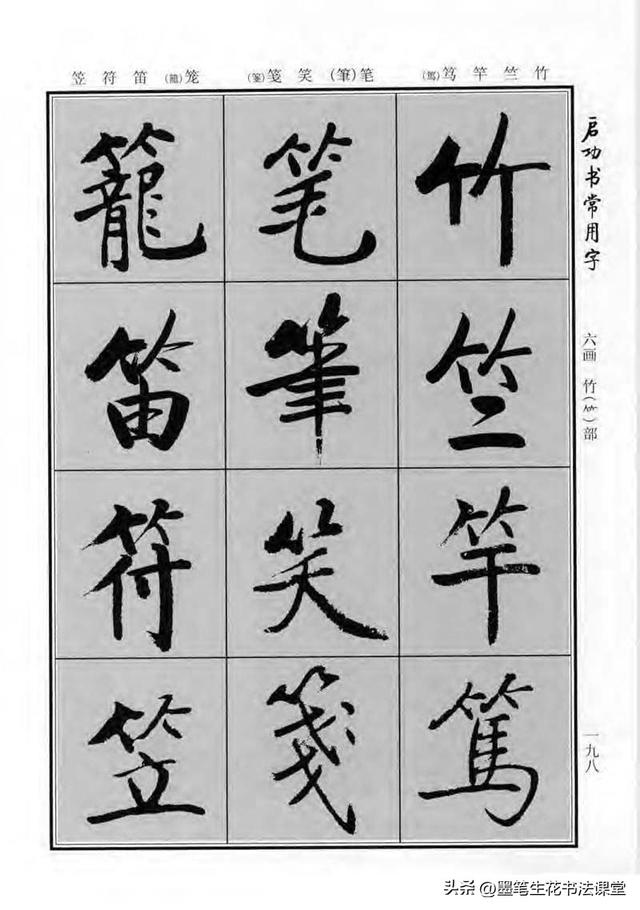 启功书常用字
六画 竹(⺮)部
一九八
竹 竺 竿 笃(篤)
笔(筆) 笑 笺(箋)
笼(籠) 笛 符 笠
竹
竺
竿
篤
笔
筆
笑
箋
籠
笛
符
笠
头条 @墨笔生花书法课堂